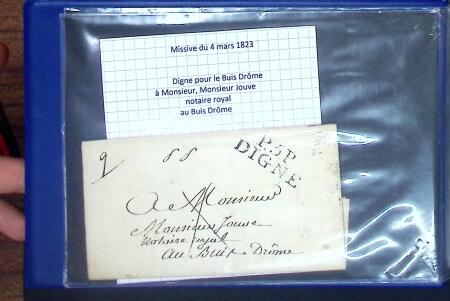 Missive du 4 mars 1823
Digne pour le Buis Drôme
à Monsieur, Monsieur Jouve
notaire royal
au Buis Drôme
P.5P
DIGNE
A Monsieur
Monsieur Jouve
Notaire royal
au Buis-Drôme